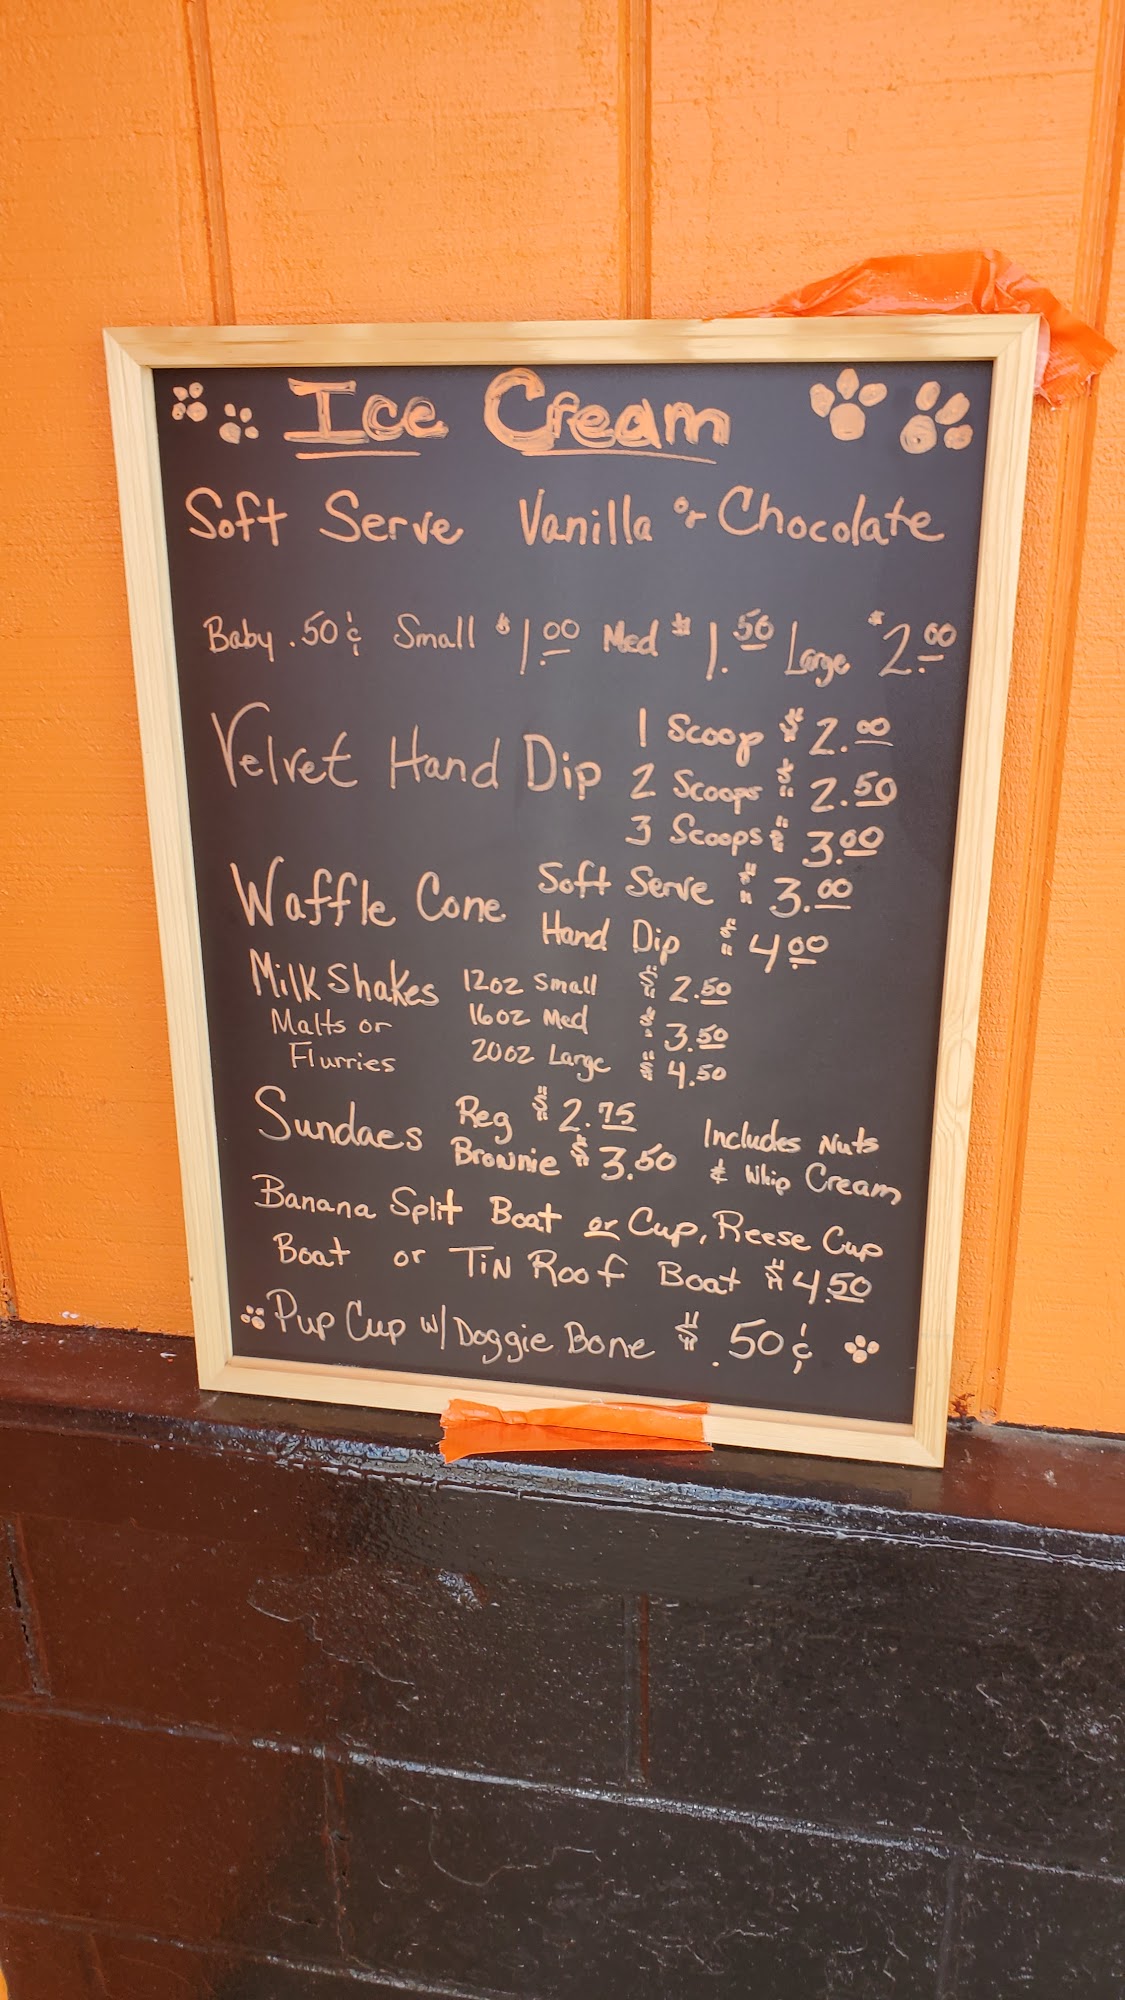 Ice Cream
Soft Serve Vanilla or Chocolate
Baby .50¢ Small $1.00 Med $1.50 Large $2.00
Velvet Hand Dip 1 Scoop $2.00
2 Scoops $2.50
3 Scoops $3.00
Waffle Cone Soft Serve $3.00
Hand Dip $4.00
Milk Shakes 12oz Small $2.50
Malts or 16oz Med $3.50
Flurries 20oz Large $4.50
Sundaes Reg $2.75 Includes Nuts
Brownie $3.50 & Whip Cream
Banana Split Boat or Cup, Reese Cup
Boat or Tin Roof Boat $4.50
Pup Cup w/ Doggie Bone $.50¢